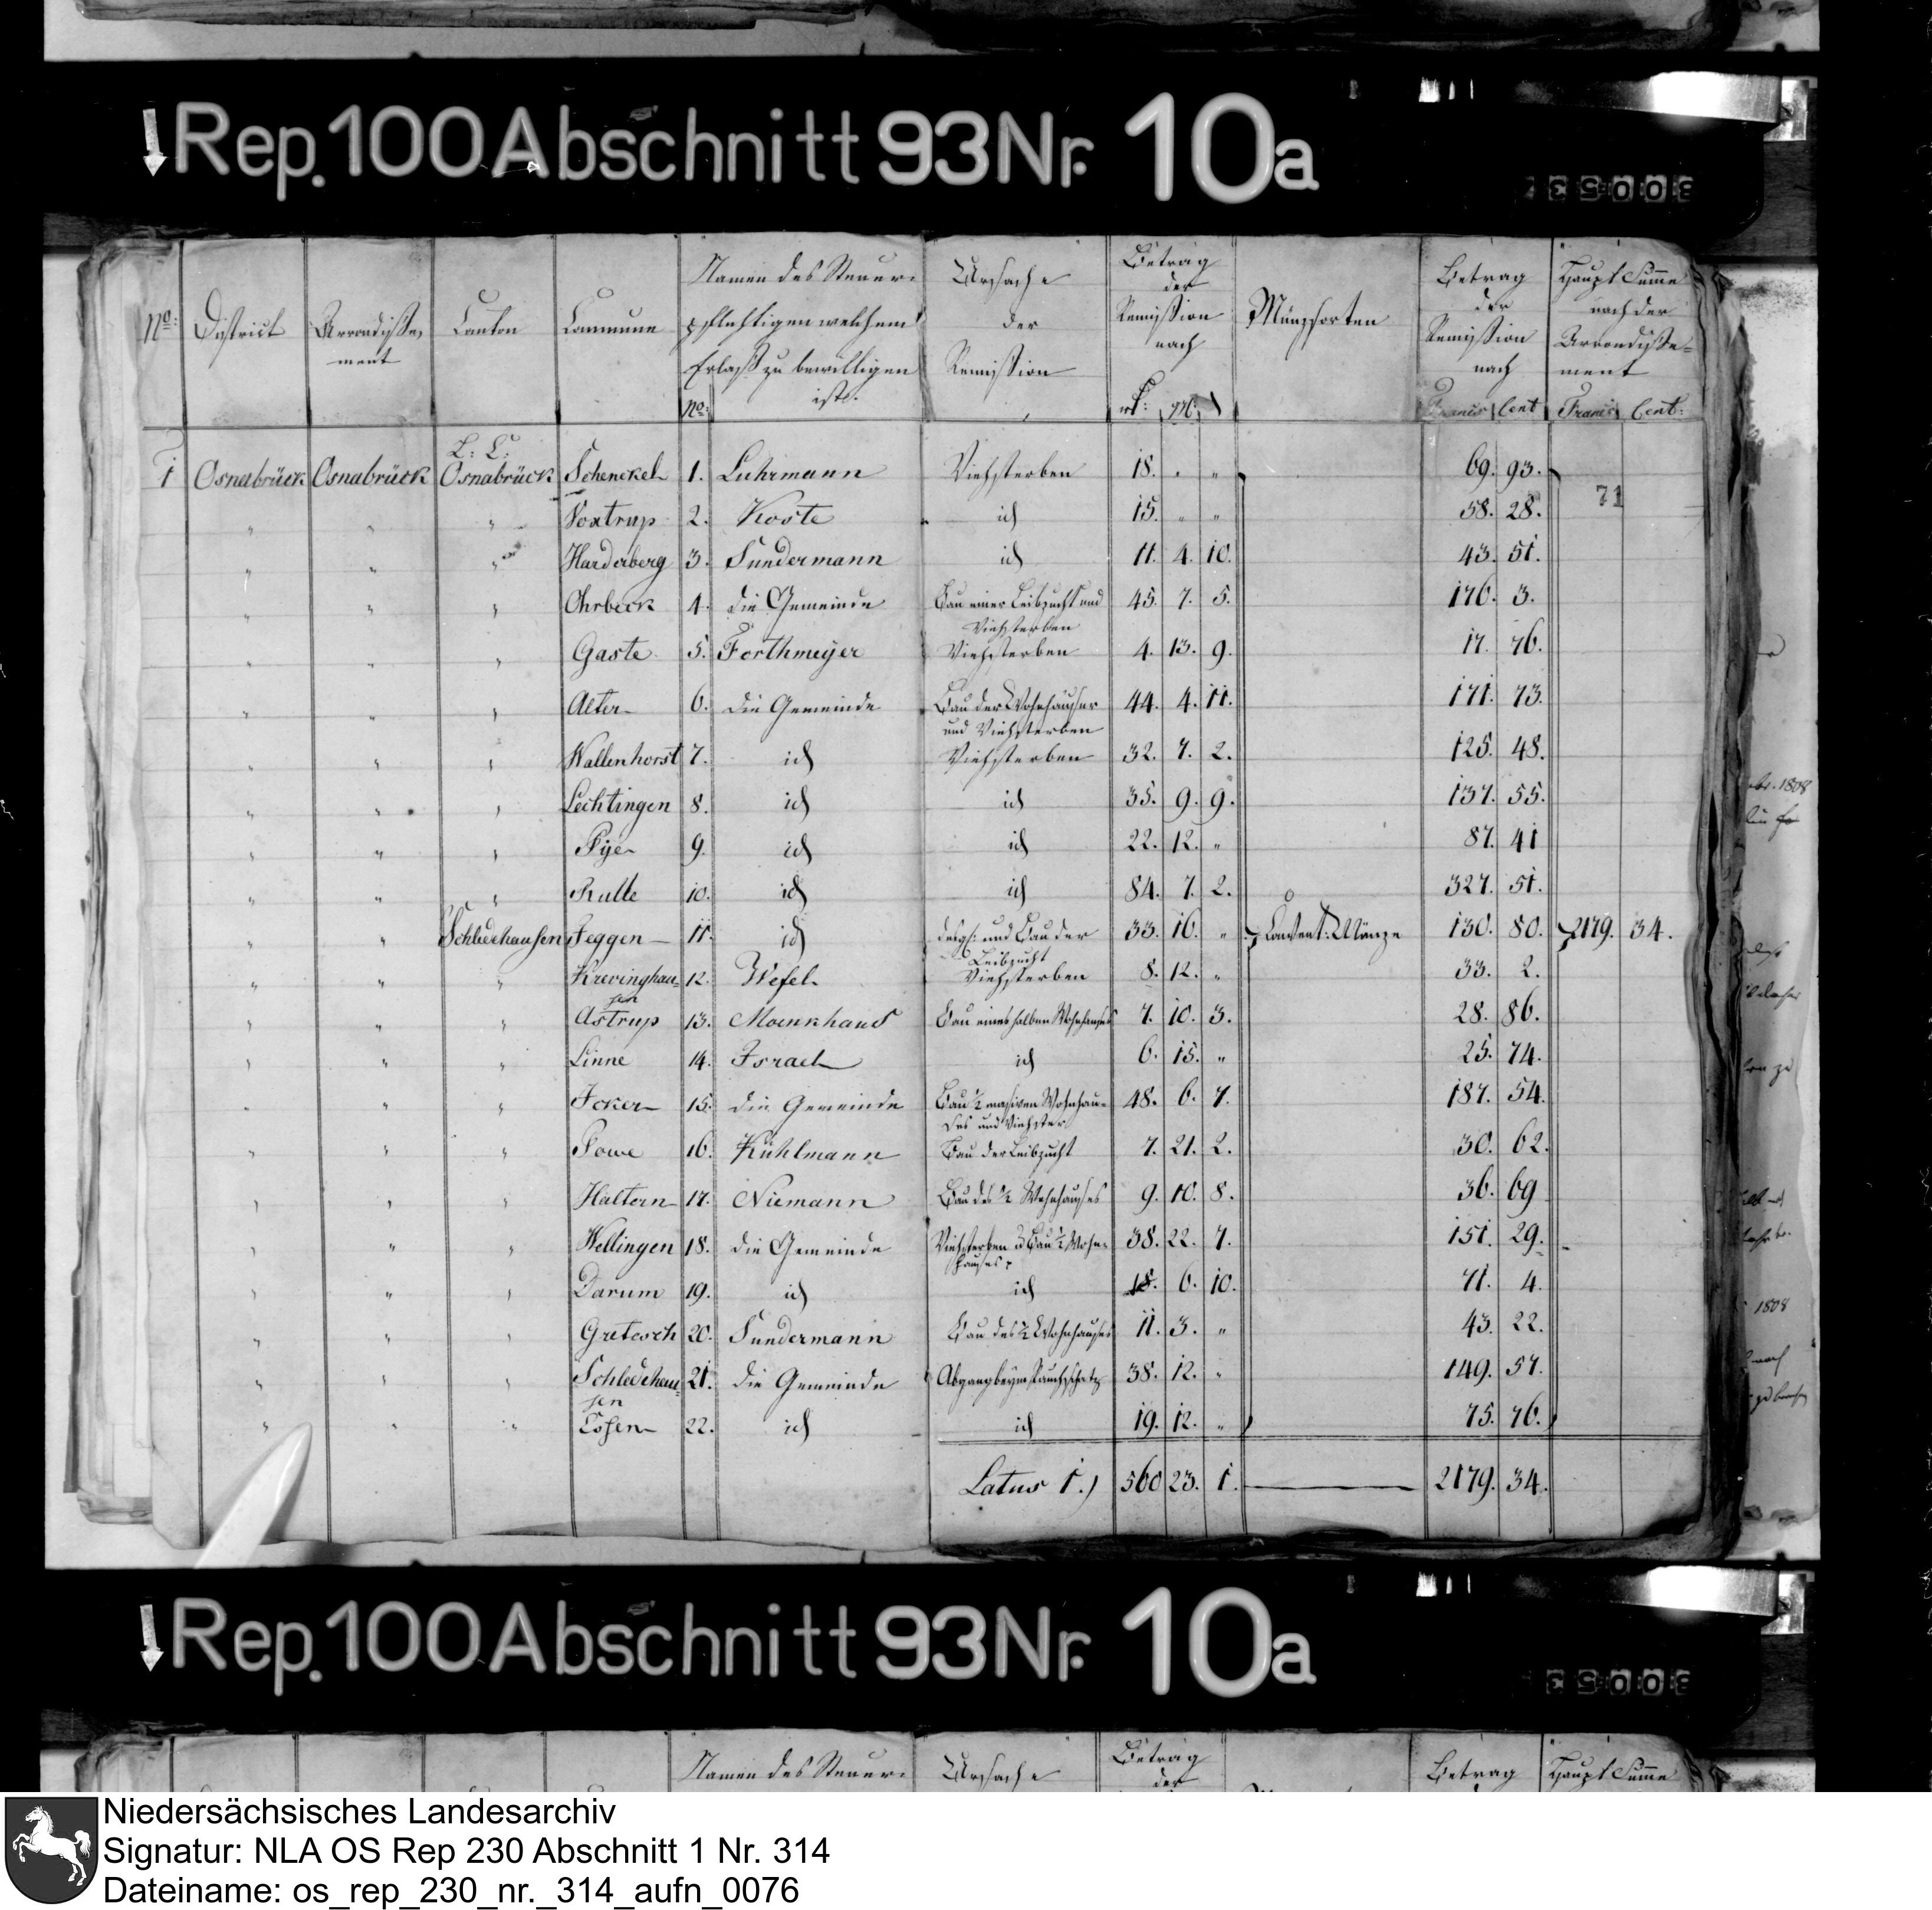 Rep. 100 Abschnitt 93 Nr. 10a
No: District Arrondisse, ment Canton Commune Namen des Steuer= pflichtigen welchem Erlaß zu bewilligen ist. No: Ursache der Remission Betrag der Remission nach Münzsorten Betrag der Remission nach Francs Cent Haupt Summe nach der Arrondisse= ment Francs Cent:
1 Osnabrück Osnabrück L: C: Osnabrück Schenckel 1. Luhrmann Viehsterben 18. " " 69. 93.
" " " Voxtrup 2. Koste id 15. " " 58. 28. 71
" " " Harderberg 3. Sundermann id 11. 4. 10. 43. 51.
" " " Ohrbeck 4. die Gemeinde Bau einer Leibzucht und Viehsterben 45. 7. 5. 176. 3.
" " " Gaste 5. Forthmeyer Viehsterben 4. 13. 9. 17. 76.
" " " Alter 6. die Gemeinde Bau der Wohnhäuser und Viehsterben 44. 4. 11. 171. 73.
" " " Wallenhorst 7. id Viehsterben 32. 7. 2. 125. 48.
" " " Lechtingen 8. id id 35. 9. 9. 137. 55.
" " " Pye 9. id id 22. 12. " 87. 41
" " " Rulle 10. id id 84. 7. 2. 327. 51.
" " Schledehausen Jeggen 11. id desgl: und Bau der Leibzucht 33. 16. " Convent: Münze 130. 80. 2179. 34.
" " " Krevinghau= sen 12. Wefel Viehsterben 8. 12. " 33. 2.
" " " Astrup 13. Moenkhaus Bau eines halben Wohnhauses 7. 10. 3. 28. 86.
" " " Linne 14. Israel id 6. 15. " 25. 74.
" " " Icker 15. die Gemeinde Bau ½ massiven Wohnhau= ses und Viehster 48. 6. 7. 187. 54.
" " " Powe 16. Kuhlmann Bau der Leibzucht 7. 21. 2. 30. 62.
" " " Haltern 17. Niemann Bau des ½ Wohnhauses 9. 10. 8. 36. 69
" " " Wellingen 18. die Gemeinde Viehsterben u Bau ½ Wohn= hauses 38. 22. 7. 151. 29.
" " " Darum 19. id id 18. 6. 10. 71. 4.
" " " Gretesch 20. Sundermann Bau des ½ Wohnhauses 11. 3. " 43. 22.
" " " Schledehau= sen 21. die Gemeinde Abgang beym Rauchschatz 38. 12. " 149. 57.
" " " Eosen 22. id id 19. 12. " 75. 76.
Latus 1.) 560 23. 1. 2179. 34.
Rep. 100 Abschnitt 93 Nr. 10a
Namen des Steuer= Ursache Betrag der Betrag Haupt Summe
Niedersächsisches Landesarchiv
Signatur: NLA OS Rep 230 Abschnitt 1 Nr. 314
Dateiname: os_rep_230_nr._314_aufn_0076